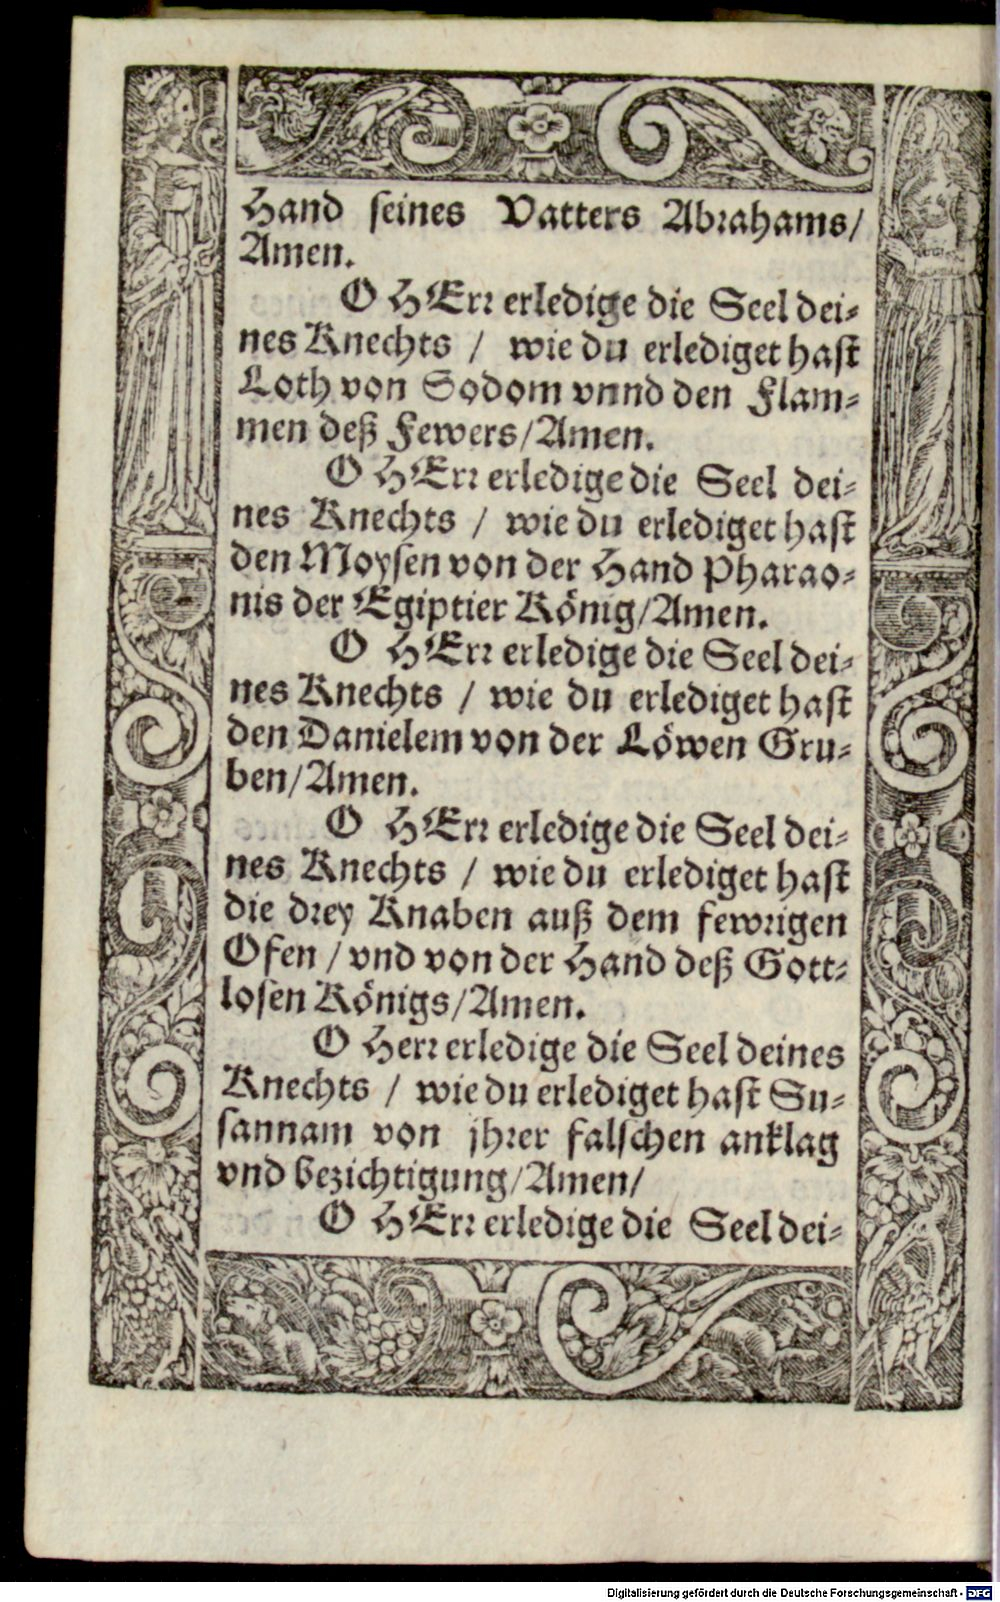 Hand seines Vatters Abrahams/
Amen.
O HErr erledige die Seel dei-
nes Knechts / wie du erlediget hast
Loth von Sodom vnnd den Flam-
men deß Fewers/Amen.
O HErr erledige die Seel dei-
nes Knechts / wie du erlediget hast
den Moysen von der Hand Pharao-
nis der Egiptier König/Amen.
O HErr erledige die Seel dei-
nes Knechts / wie du erlediget hast
den Danielem von der Löwen Gru-
ben/Amen.
O HErr erledige die Seel dei-
nes Knechts / wie du erlediget hast
die drey Knaben auß dem fewrigen
Ofen / vnd von der Hand deß Gott-
losen Königs/Amen.
O Herr erledige die Seel deines
Knechts / wie du erlediget hast Su-
sannam von jhrer falschen anklag
vnd bezichtigung/Amen/
O HErr erledige die Seel dei-
Digitalisierung gefördert durch die Deutsche Forschungsgemeinschaft - DFG